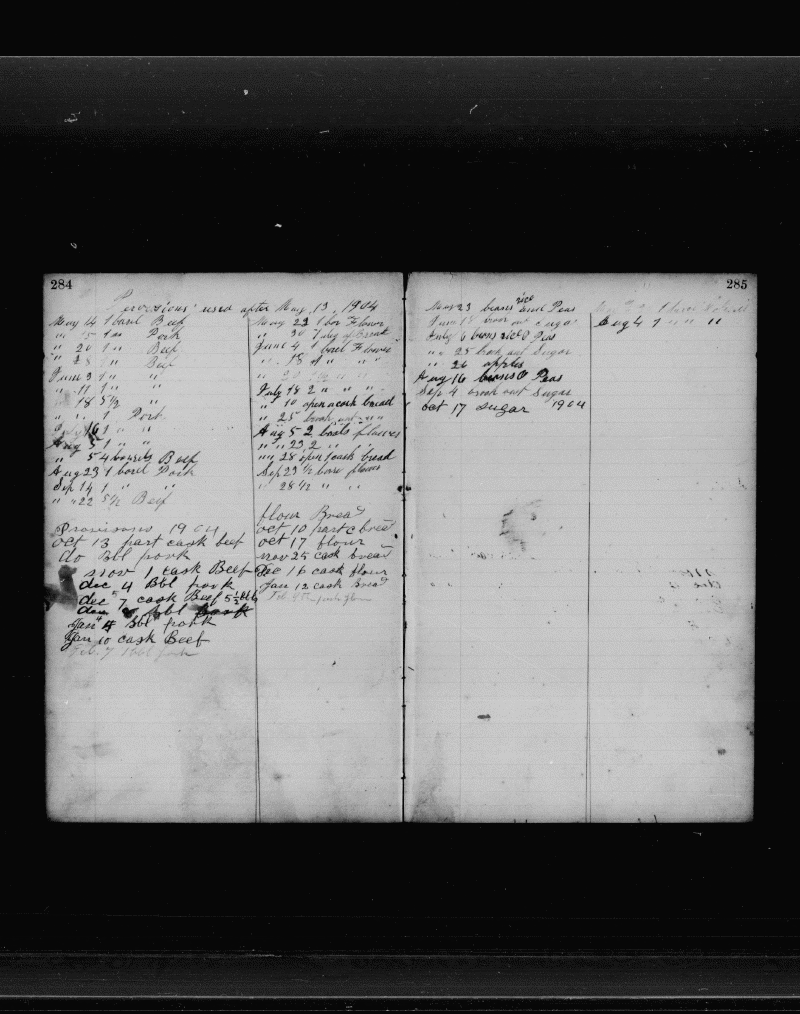 284
Provisions used after May 13, 1904
May 14 1 barel Beef
" 15 1 " Pork
" 20 1 " Beef
" 28 1 " Beef
June 3 1 " "
" 11 1 " "
" 18 5 1/2 "
" " 1 " Pork
July 16 1 " "
Aug 5 1 " "
" 5 4 barels Beef
Aug 23 1 barel Pork
Sep 14 1 " "
" " 22 5 1/2 Beef
Provisions 1904
oct 13 part cask beef
do Bbl pork
nov 1 cask Beef
dec 4 Bbl pork
dec 7 cask Beef 5 1/2 bbl
Jan 4 Bbl pork
Jan 10 cask Beef
Feb. 7 1 bbl pork
May 22 1 bar Flower
" 30 1 of Bread
June 4 1 barel Flower
" 18 " "
July 18 2 " " "
" 10 open a cask bread
" 25 brook out " "
Aug 5 2 barels flower
" " 23 2 " "
" 28 open 1 cask bread
Sep 23 1/2 bare flower
" 28 1/2 " "
flour Bread
oct 10 part c bred
oct 17 flour
nov 25 cask bread
Dec 16 cask flour
Jan 12 cask Bread
285
May 23 beans rice and Peas
June 18 brook out Sugar
July 6 beans rice & Peas
" " 25 brook out Sugar
" 26 apples
Aug 16 beans & Peas
Sep 4 brook out Sugar
oct 17 sugar 1904
Aug 4 1 " " "